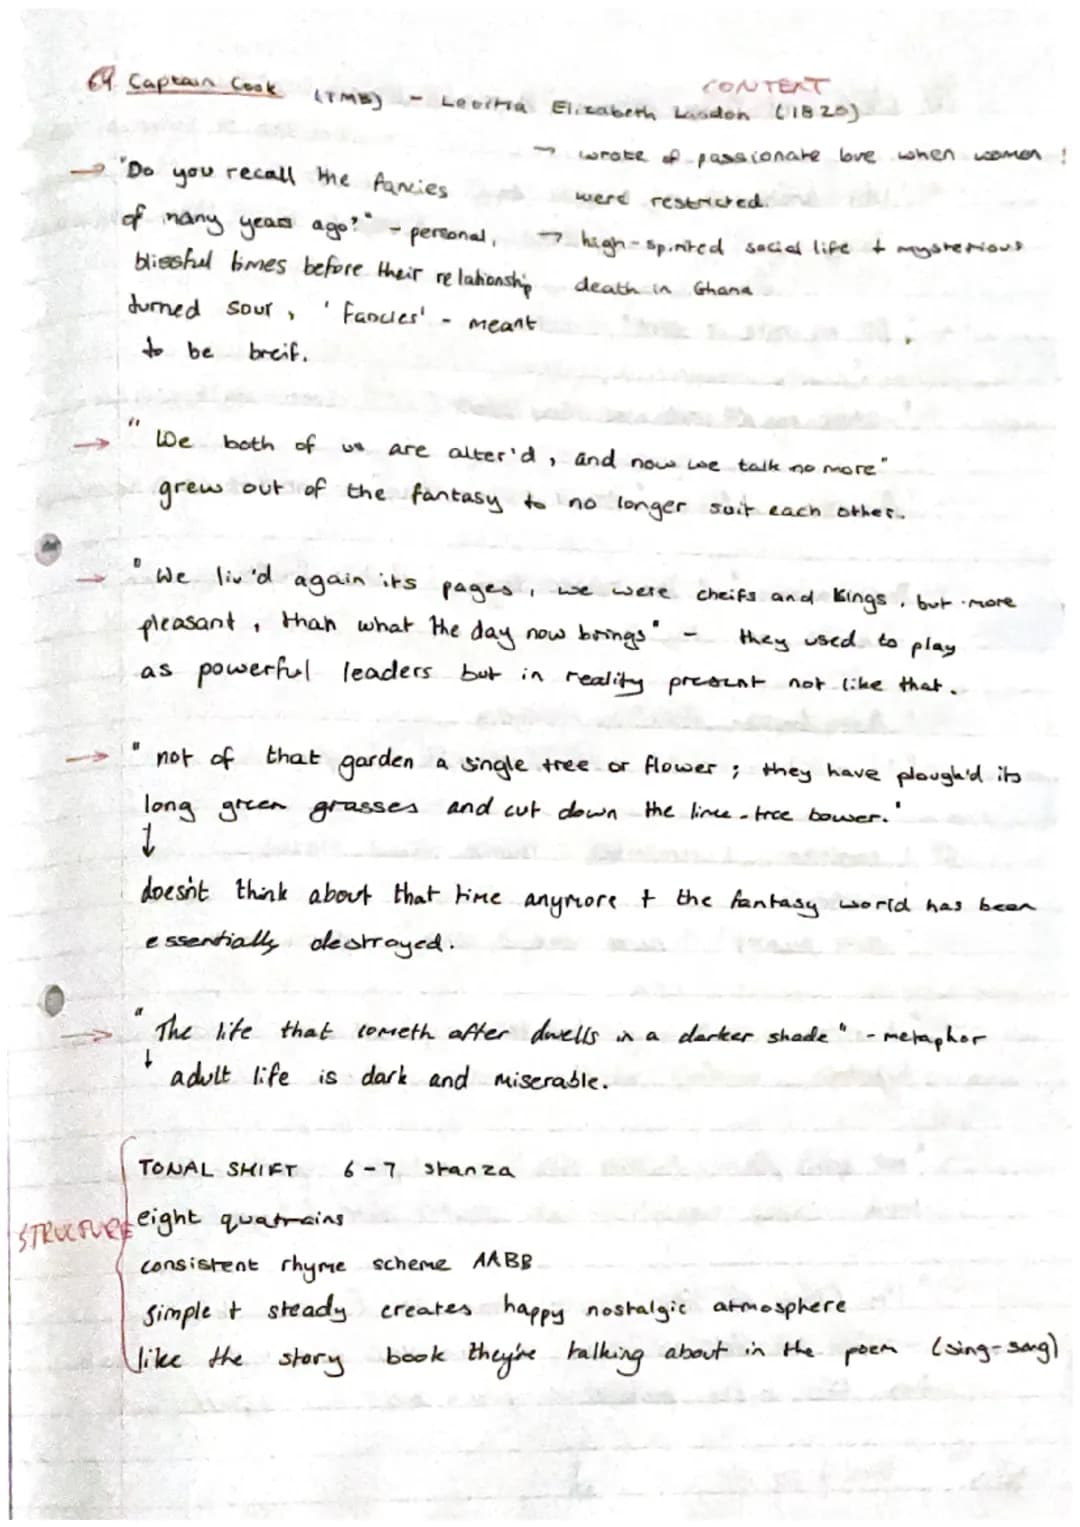 64. Captain Cook (TMB) - Leoitia Elizabeth Landon (1820)
CONTEXT
→ wrote of passionate love when women
were restricted.
→ high-spirited social life + mysterious
death in Ghana
→ "Do you recall the fancies
of many years ago?" - personal,
blissful times before their relationship
turned sour, 'fancies' - meant
to be breif.
→ "We both of us are alter'd, and now we talk no more"
grew out of the fantasy to no longer suit each other.
→ "We liv'd again its pages, we were cheifs and kings, but more
pleasant, than what the day now brings" - they used to play
as powerful leaders but in reality present not like that.
→ "not of that garden a single tree or flower; they have plough'd its
long green grasses and cut down the lime-tree bower."
↓
doesn't think about that time anymore + the fantasy world has been
essentially destroyed.
→ "The life that cometh after dwells in a darker shade" - metaphor
↓ adult life is dark and miserable.
STRUCTURE
TONAL SHIFT 6-7 stanza
eight quatrains
consistent rhyme scheme AABB
simple + steady creates happy nostalgic atmosphere
like the story book they're talking about in the poem (sing-song)